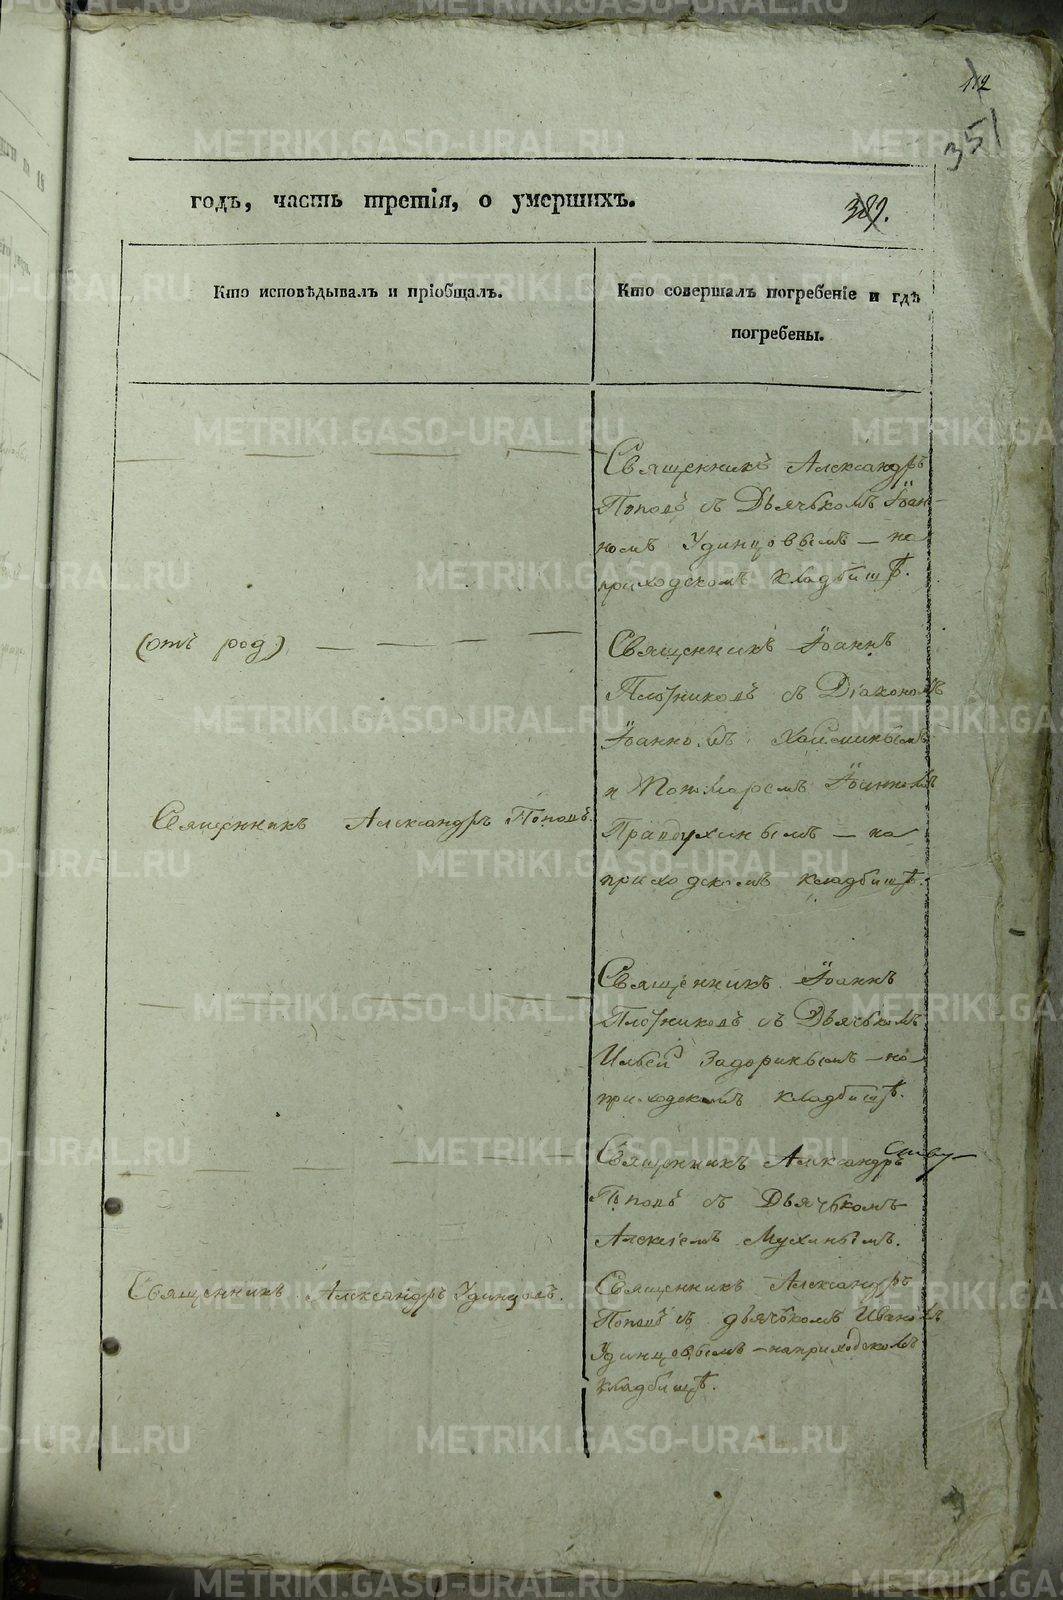 112
351
годъ, часть третія, о умершихъ.
389.
Кто исповѣдывалъ и пріобщалъ.
Кто совершалъ погребеніе и гдѣ
погребены.
Священникъ Александръ
Поповъ съ Дьячькомъ Іоан-
номъ Удинцовымъ – на
приходскомъ кладбищѣ.
(отъ род)
Священникъ Іоаннъ
Плотниковъ съ Діакономъ
Іоанномъ
и Пономаремъ Іоанномъ
Правдухинымъ – на
приходскомъ кладбищѣ.
Священникъ Александръ Поповъ.
Священникъ Іоаннъ
Плотниковъ съ Дьячькомъ
Ильей Задоринымъ – на
приходскомъ кладбищѣ.
Священникъ Александръ
Поповъ съ Дьячькомъ
Алексіемъ Мухинымъ.
Священникъ Александръ Удинцовъ.
Священникъ Александръ
Поповъ съ дьячькомъ Иваномъ
Удинцовымъ – на приходскомъ
кладбищѣ.
METRIKI.GASO-URAL.RU